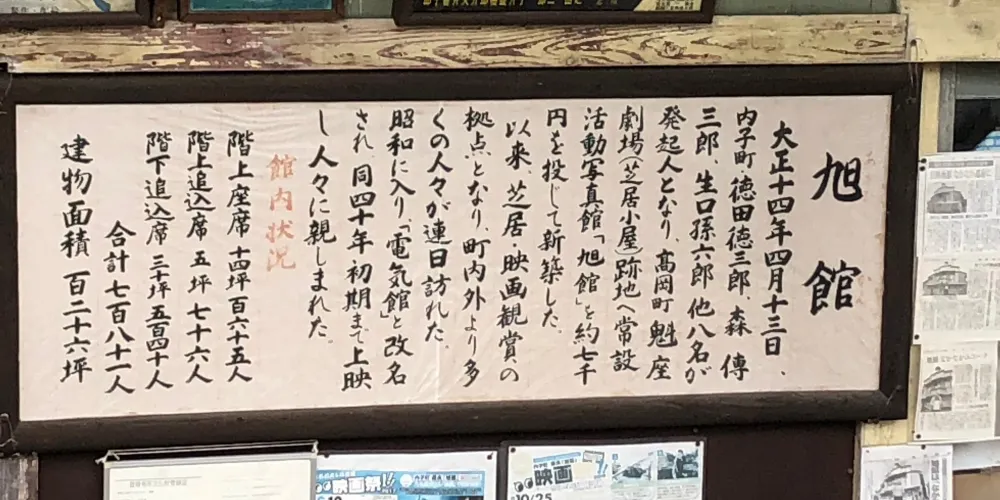 旭館
大正十四年四月十三日、
内子町 徳田徳三郎、森 傳
三郎 生口孫六郎 他八名が
発起人となり、髙岡町 魁座
劇場(芝居小屋)跡地へ常設
活動写真館「旭館」を約七千
円を投じて新築した。
以来、芝居・映画観賞の
拠点となり、町内外より多
くの人々が連日訪れた。
昭和に入り、「電気館」と改名
され、同四十年初期まで上映
し人々に親しまれた。
館内状況
階上座席 十四坪 百六十五人
階上追込席 五坪 七十六人
階下追込席 三十坪 五百四十人
合計七百八十一人
建物面積 百二十六坪
映画祭!!
映画
10/25